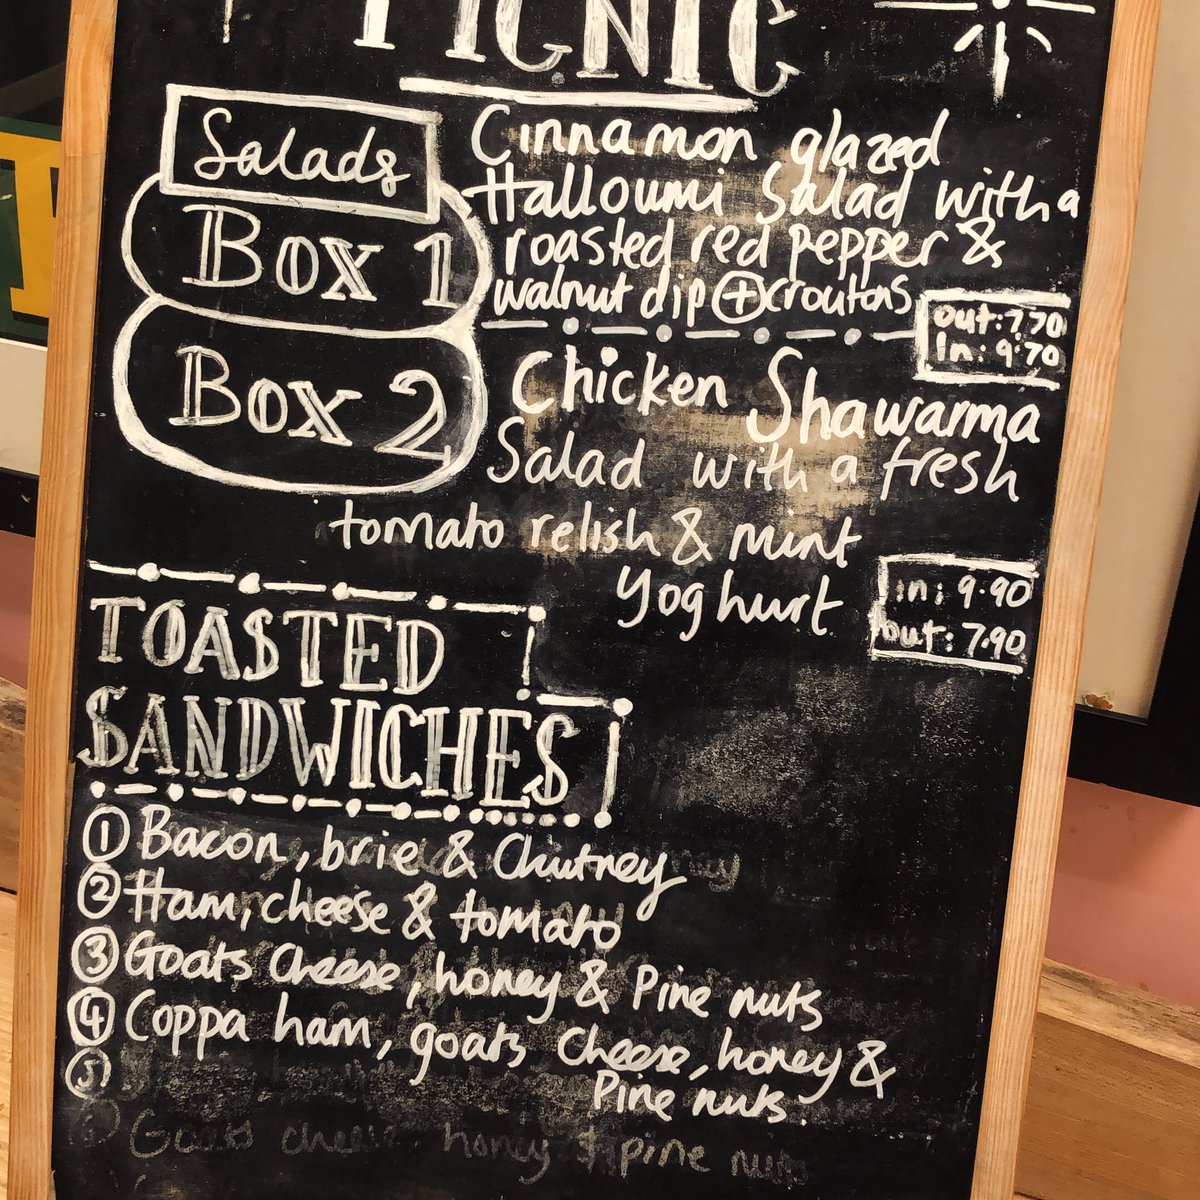 PICNIC
Salads
Box 1
Cinnamon glazed
Halloumi Salad with a
roasted red pepper &
walnut dip + croutons
out: 7.70
in: 9.70
Box 2
Chicken Shawarma
Salad with a fresh
tomato relish & mint
yoghurt
in: 9.90
out: 7.90
TOASTED
SANDWICHES
1 Bacon, brie & Chutney
2 Ham, cheese & tomato
3 Goats Cheese, honey & Pine nuts
4 Coppa ham, goats cheese, honey &
Pine nuts
5
6 Goats cheese honey & pine nuts